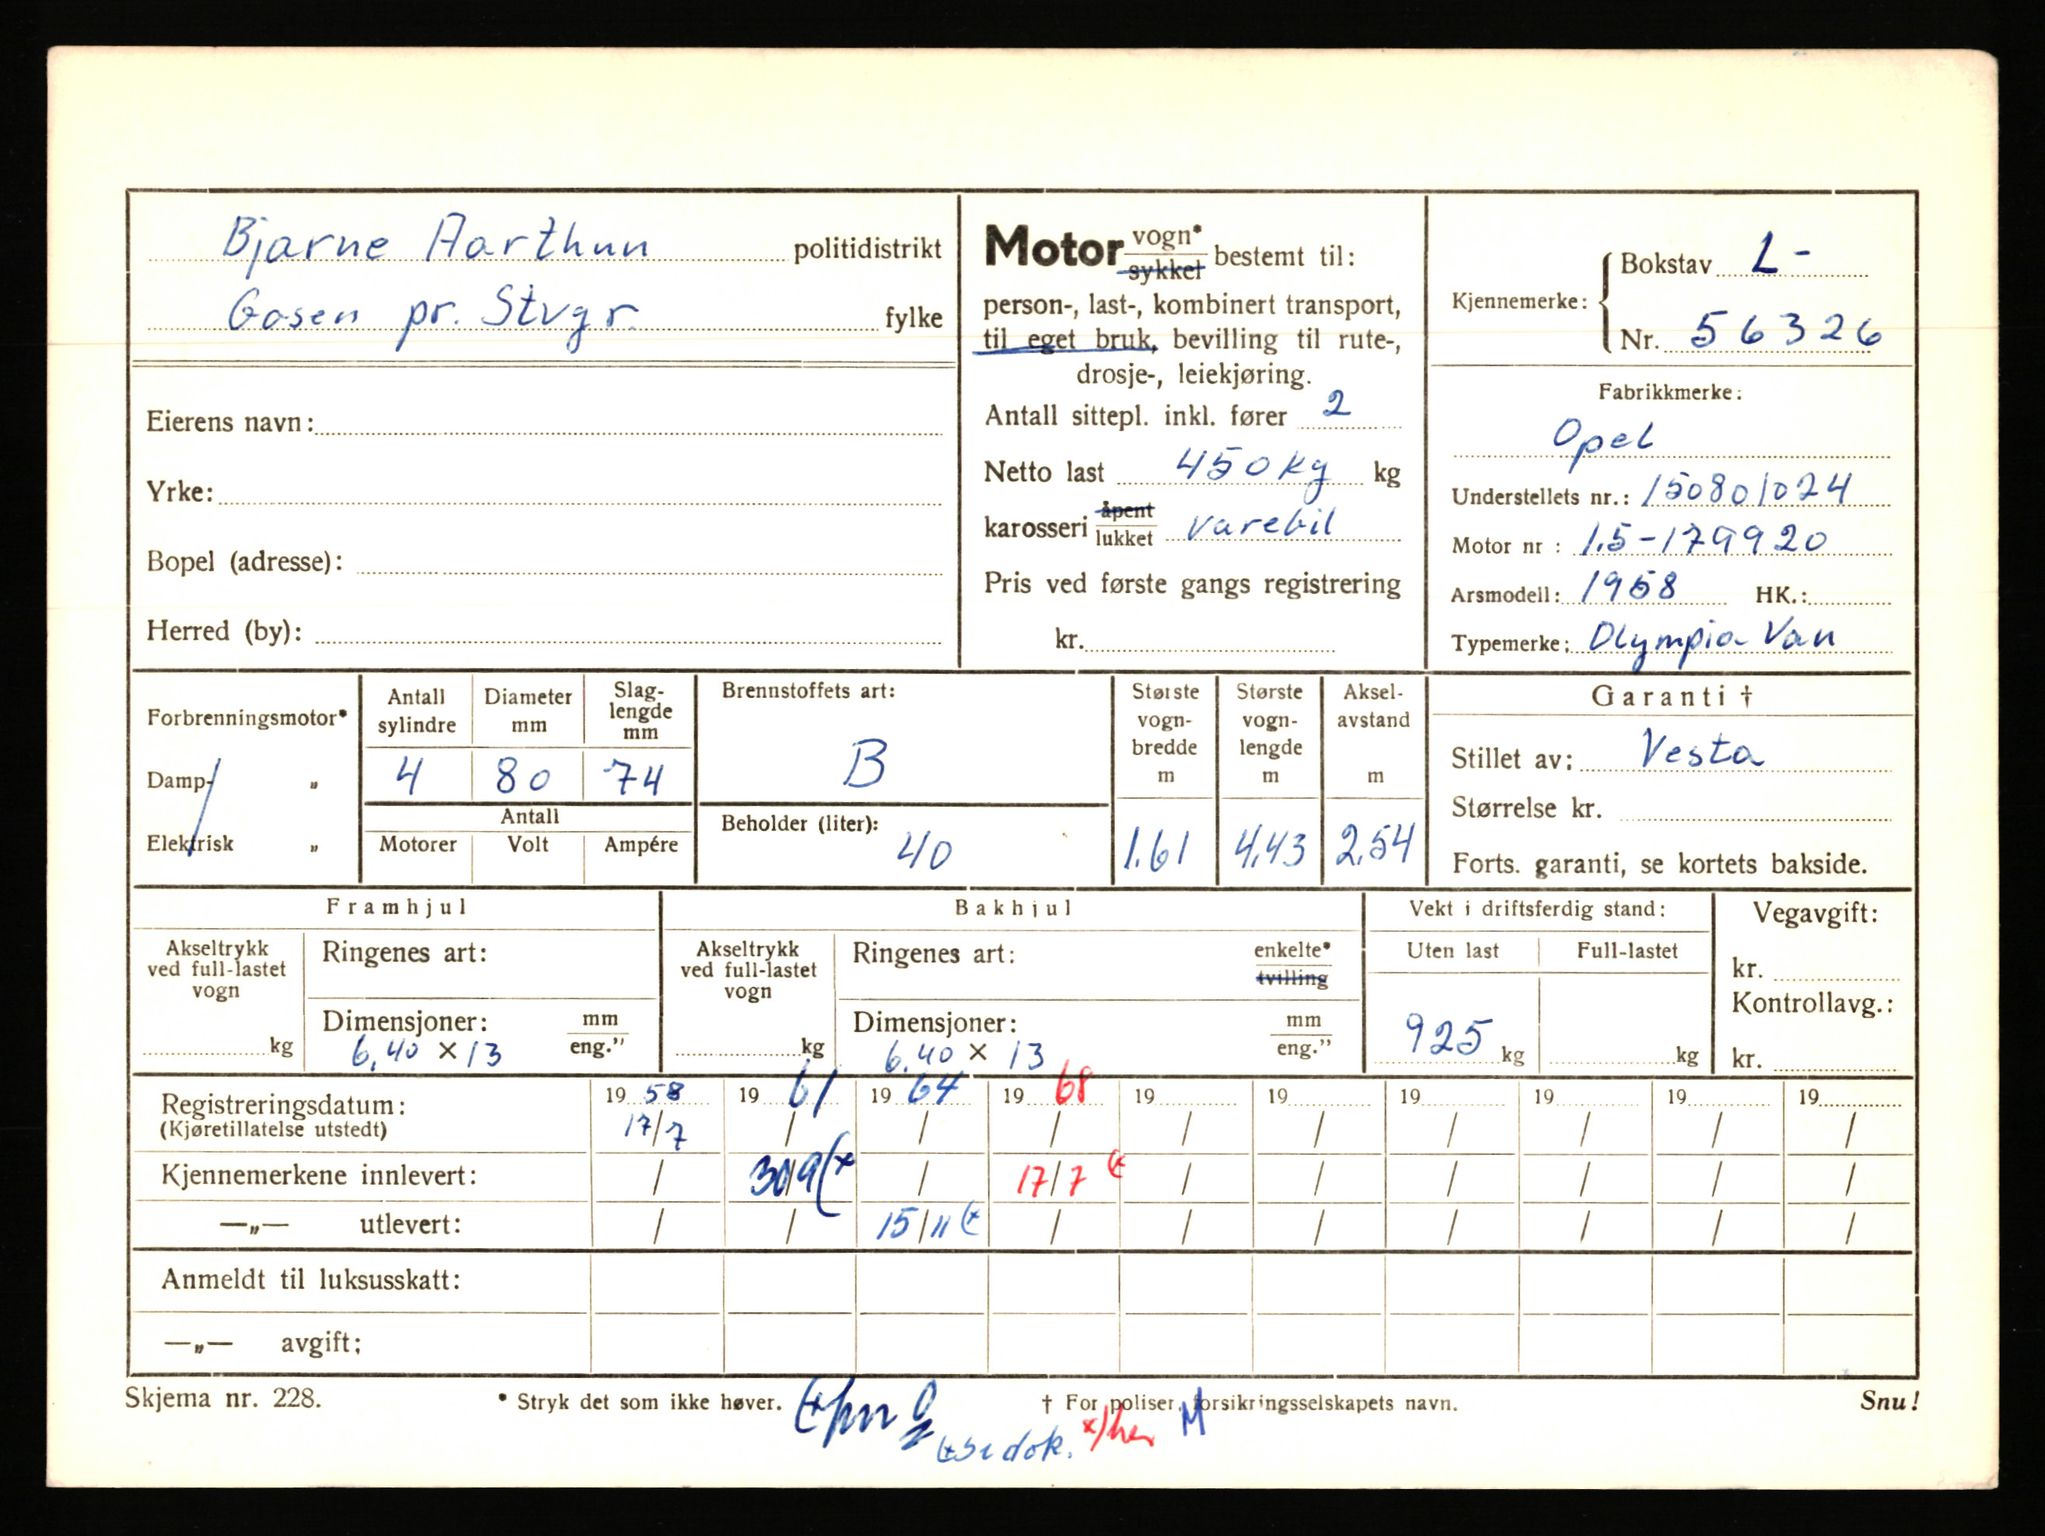 Bjarne Aarthun politidistrikt
Gosen pr. Stvgr. fylke
Eierens navn:
Yrke:
Bopel (adresse):
Herred (by):
Motor vogn* sykkel bestemt til:
person-, last-, kombinert transport,
til eget bruk, bevilling til rute-,
drosje-, leiekjøring.
Antall sittepl. inkl. fører 2
Netto last 450 kg kg
karosseri åpent lukket varebil
Pris ved første gangs registrering
kr.
Kjennemerke: Bokstav L-
Nr. 56326
Fabrikkmerke:
Opel
Understellets nr.: 150801024
Motor nr : 1.5-179920
Arsmodell: 1958 HK.:
Typemerke: Olympia Van
Forbrenningsmotor*
Damp- „
Elektrisk „
Antall sylindre
4
Diameter mm
80
Slag-lengde mm
74
Antall
Motorer Volt Ampére
Brennstoffets art:
B
Beholder (liter):
40
Største vogn-bredde m
1.61
Største vogn-lengde m
4.43
Aksel-avstand m
2.54
Garanti †
Stillet av: Vesta
Størrelse kr.
Forts. garanti, se kortets bakside.
Framhjul
Akseltrykk ved full-lastet vogn
kg
Ringenes art:
Dimensjoner: mm eng."
6.40 × 13
Bakhjul
Akseltrykk ved full-lastet vogn
kg
Ringenes art: enkelte* tvilling
Dimensjoner: mm eng."
6.40 × 13
Vekt i driftsferdig stand:
Uten last Full-lastet
925 kg kg
Vegavgift:
kr.
Kontrollavg.:
kr.
Registreringsdatum: 19 58 19 61 19 64 19 68 19 19 19 19 19 19
(Kjøretillatelse utstedt) 17/7 / / / / / / / / /
Kjennemerkene innlevert: / 30/9 (* / 17/7 (* / / / / / /
—„— utlevert: / / 15/11 (* / / / / / / /
Anmeldt til luksusskatt:
—„— avgift;
Skjema nr. 228. * Stryk det som ikke høver. † For poliser, forsikringsselskapets navn. Snu!
se dok. x/her M